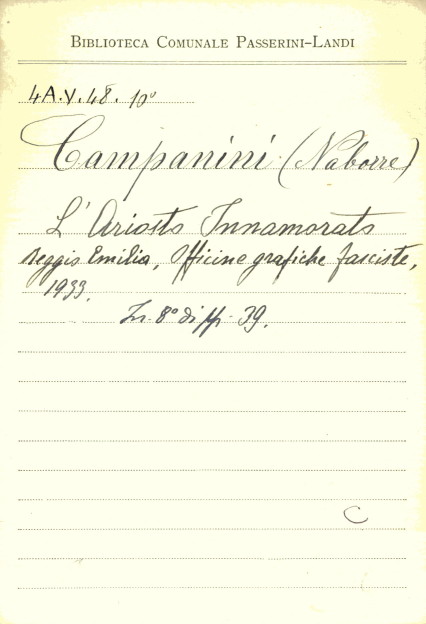 BIBLIOTECA COMUNALE PASSERINI-LANDI
4A.V.48. 10°
Campanini (Naborre)
L'Ariosto Innamorato
Reggio Emilia, Officine grafiche fasciste,
1933.
In-8° di pp. 39.
C